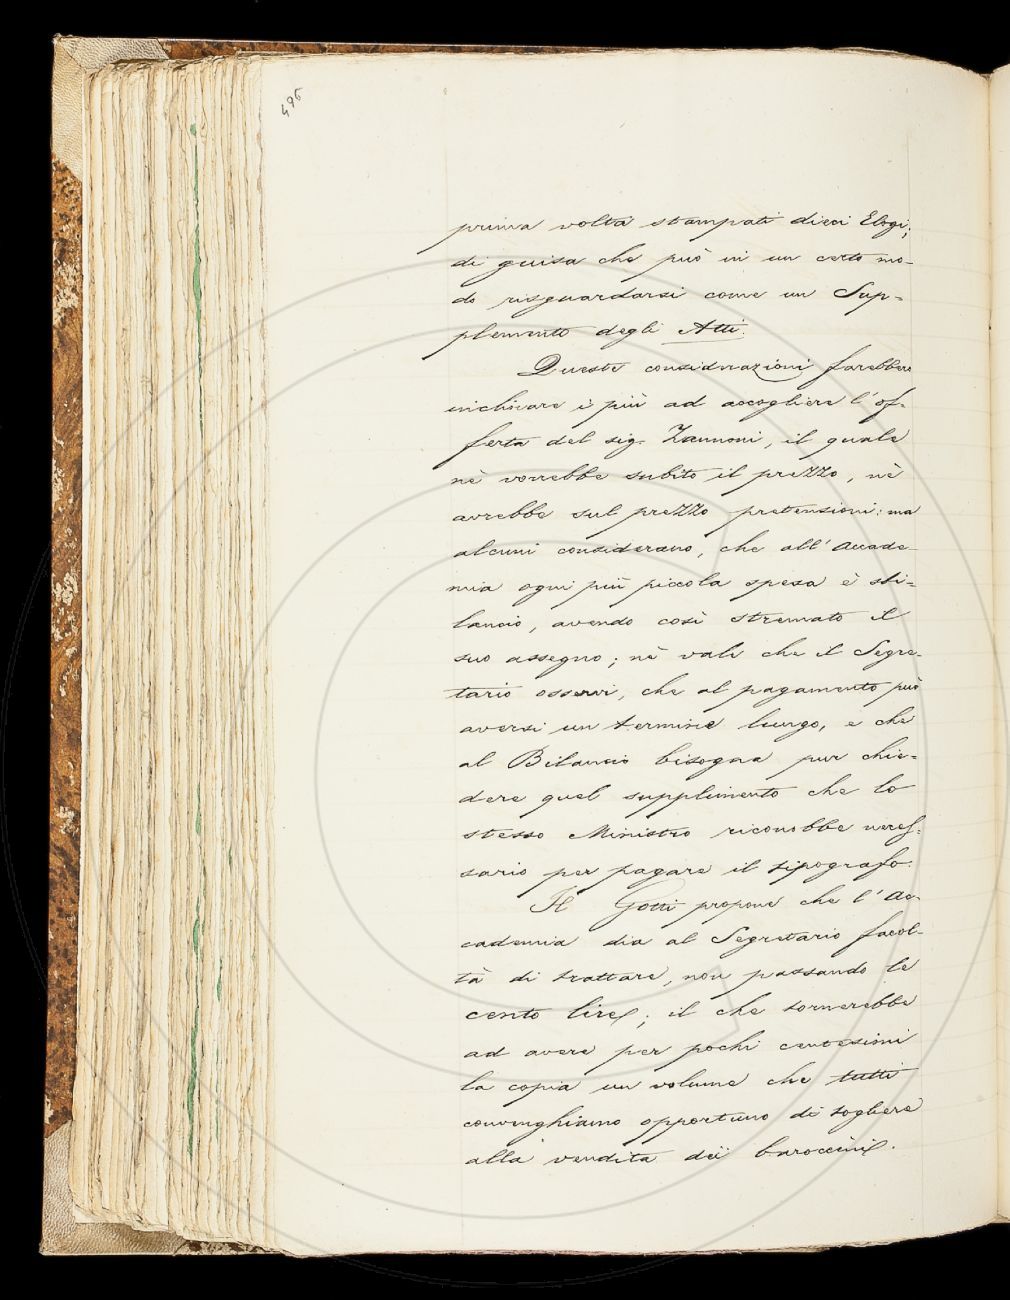 496
prima volta stampati dieci Elogi;
di guisa che può in un certo mo-
do risguardarsi come un Sup-
plemento degli Atti.
Queste considerazioni farebbero
inchinare i più ad accogliere l'of-
ferta del sig. Zannoni, il quale
nè vorrebbe subito il prezzo, nè
avrebbe sul prezzo pretensioni: ma
alcuni considerano, che all'Accade-
mia ogni più piccola spesa è sbi-
lancio, avendo così stremato il
suo assegno; nè vale che il Segre-
tario osservi, che al pagamento può
aversi un termine lungo, e che
al Bilancio bisogna pur chie-
dere quel supplimento che lo
stesso Ministro riconobbe neces-
sario per pagare il tipografo.
Il Gotti propone che l'Ac-
cademia dia al Segretario facol-
tà di trattare, non passando le
cento lire; il che tornerebbe
ad avere per pochi centesimi
la copia un volume che tutti
convenghiamo opportuno di togliere
alla vendita dei baroccini.